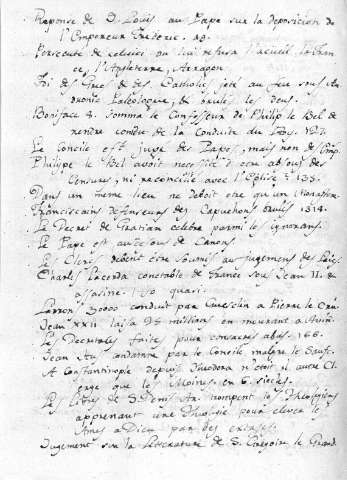 Reponse de S. Louis au Pape sur la deposition de
l'Empereur Frederic. 29.
Persecuté de celuici on lui refusa l'accueil la Fran
ce, l'Angleterre, Arragon.
Foi des Grecs & des Cathol. jeté au feu sous An
dronic Paleologue, & brulés les deux.
Boniface 8. somma le Confesseur de Philip le Bel de
rendre compte de la Conduite du
Le Concile est juge des Papes, mais non de Simp.
Philippe le Bel avoit necessité d'etre absous des
Censures, ni reconcilié avec l'Eglise 135.
Dans un meme lieu ne devoit etre qu'un Monastere.
Franciscains defenseurs des Capuchons brulés 1314.
Le Decret de Gratian celebre parmi les ignorans.
Le Pape est au dessous de Canons.
Le Clerc doivent etre soumis au jugement des
Charles Lacerda conetable de France sous Jean II. &
assasiné. 150 quasi.
30000 conduit par Guesclin a Pierre le Cru.
Jean XXII laissa 25 millions en mourant a Avin.
Les Decretales faites pour consacrer abus. 166.
Jean condamné par le Concile malgré le Sauf.
A Constantinople depuis Theodora n'etoit d'autre Cl
ergé que les Moines. en 6. siecles.
Les Livres de S. Denis Ar. trompent les Theologiens
apprenant une Theologie pour elever les
Ames a Dieu par des extases.
Jugement sur la litterature de S. Gregoire le Grand.